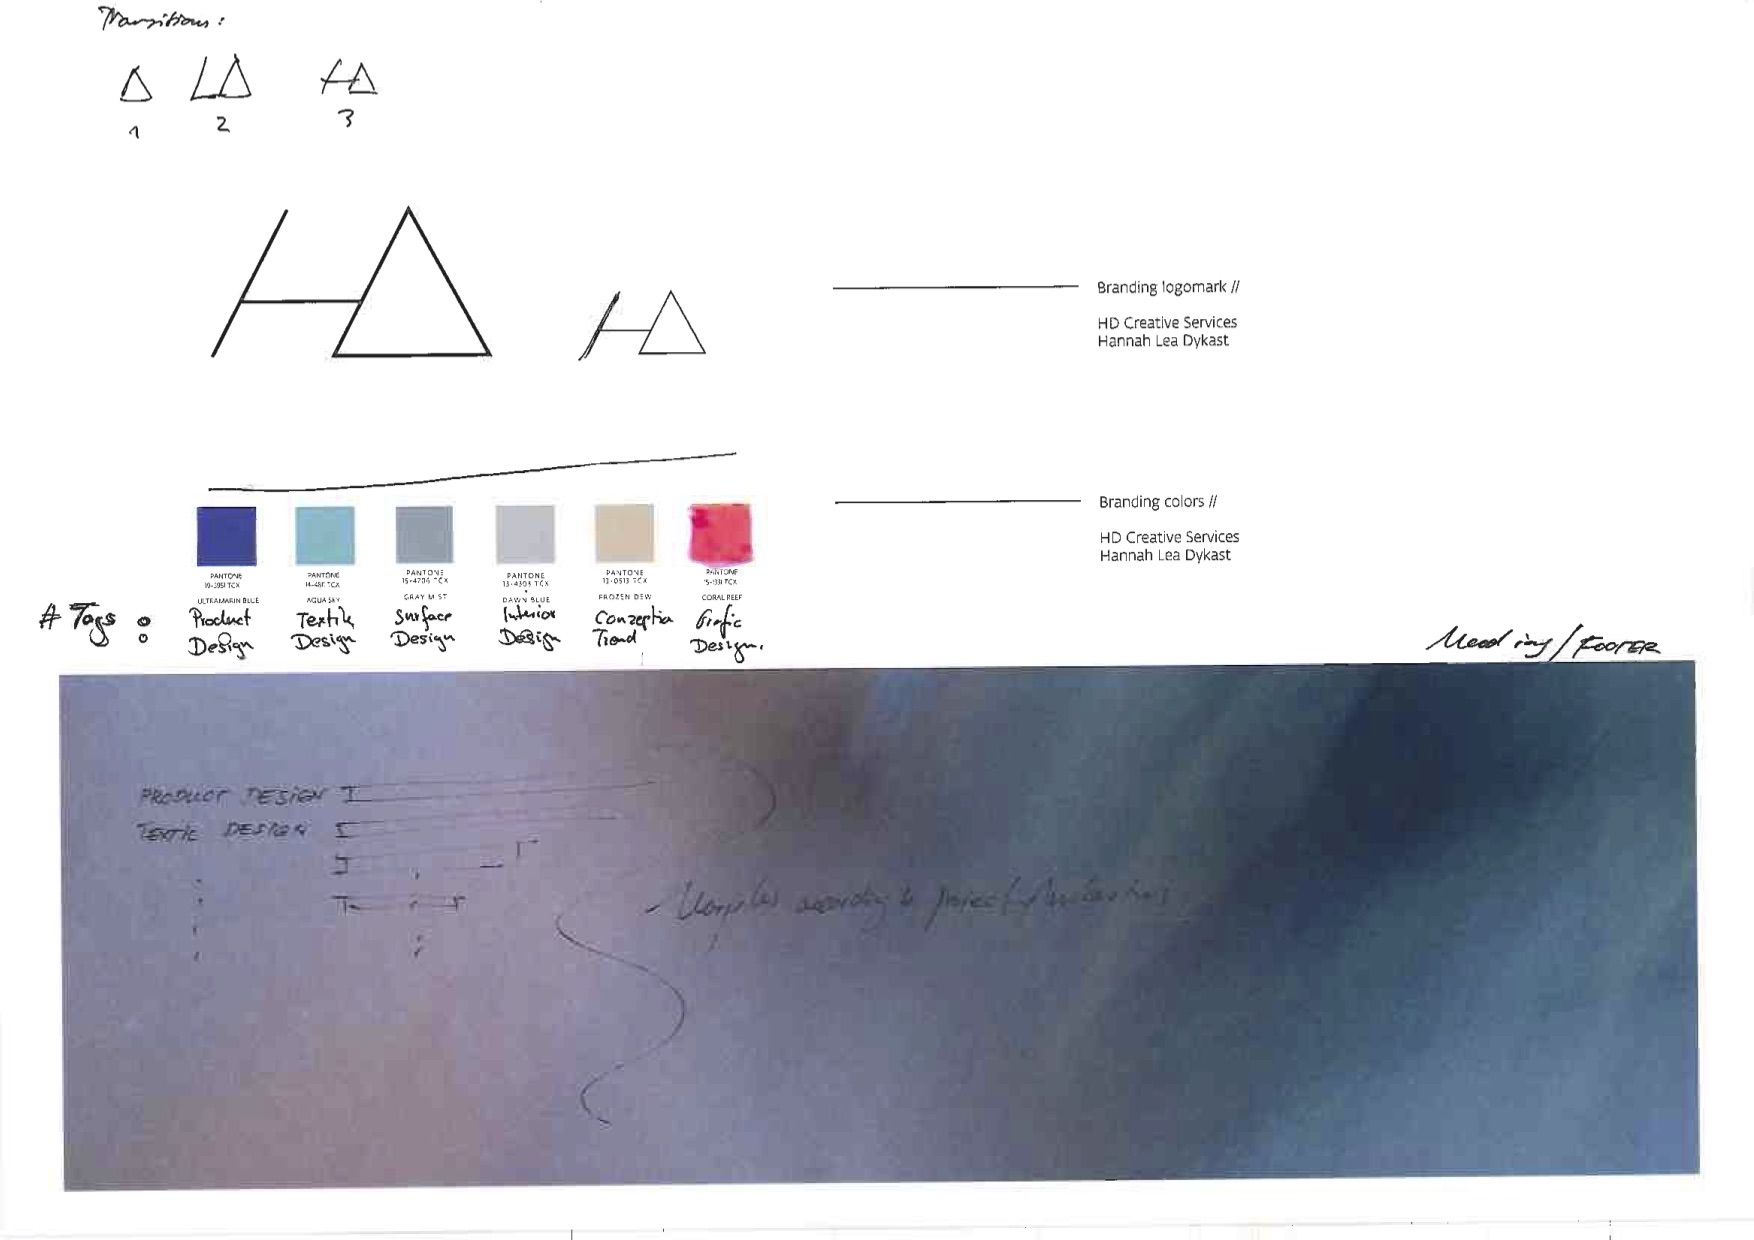 Transitions:
1 2 3
Branding logomark //
HD Creative Services
Hannah Lea Dykast
Branding colors //
HD Creative Services
Hannah Lea Dykast
PANTONE
ULTRAMARIN BLUE
PANTONE
AQUA SKY
PANTONE
15-4706 TCX
GRAY MIST
PANTONE
13-4303 TCX
DAWN BLUE
PANTONE
13-0513 TCX
FROZEN DEW
PANTONE
CORAL REEF
# Tags :
Product
Design
Textile
Design
Surface
Design
Interior
Design
Trend
Grafic
Design.
/ FOOTER
PRODUCT DESIGN
TEXTIL DESIGN
according to